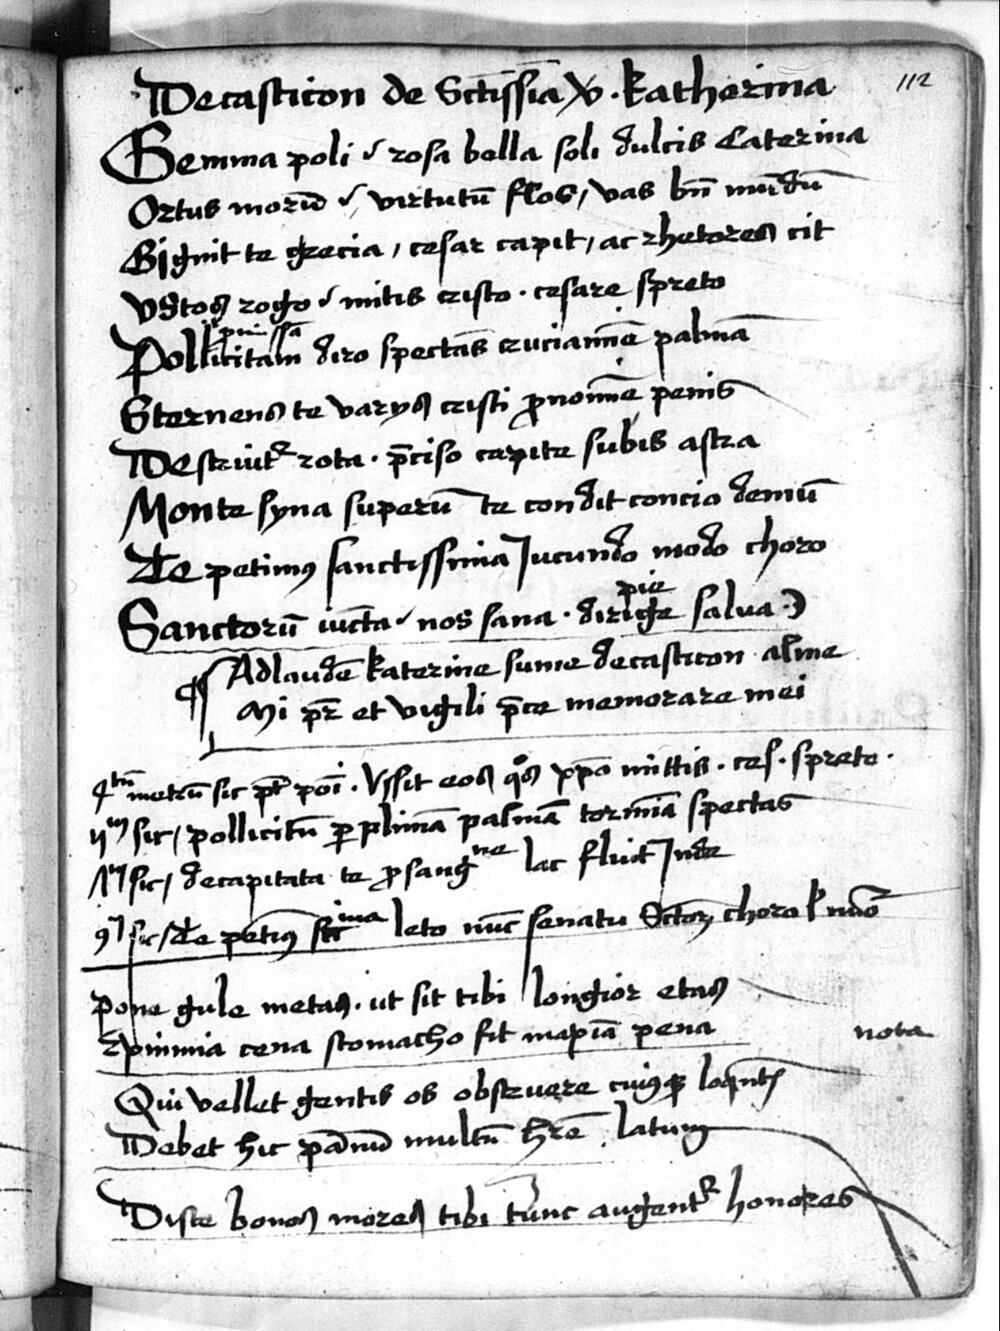 Decasticon de Sctissīa V. Katherina
112
Gemma poli & rosa bella soli dulcis Caterina
Ortus morū &, virtutū flos, vas bn̄ mundū
Gignit te grecia, cesar capit, ac rhetores cit
Ustos rogo & mitis cristo. cesare spreto
Pollicitam diro spectās cruciamīe palmā
Sternens te varijs cristi pro nomīe penis
Destruit² rota. p̄ciso capite subis astra
Monte syna superū te condit concio demū
Te petimus sanctissima Jucundo modo choro
pie
Sanctorū iūcta nos sana. dirige salva
Ad laudē katerine sume decasticon alme
Mi pr̄ et vigili p̄ce memorare mei
4tū metrū sic pt poī. Ussit eos qos xpo mittis. ces. spreto.
sic, pollicitū per plimā palmā tormīa spectas
sic, decapitata te pro sangne lac fluit Inde
sic, Te petimus leto nūc senatu Sctorū choro
pone gule metas. ut sit tibi longior etas
Ex minima cena stomacho fit maxīa pena
nota
Qui vellet gentis os obstruere cuiusque loquntis
Debet hic pannū multū hr̄e latum
Disce bonos mores tibi tunc augent² honores